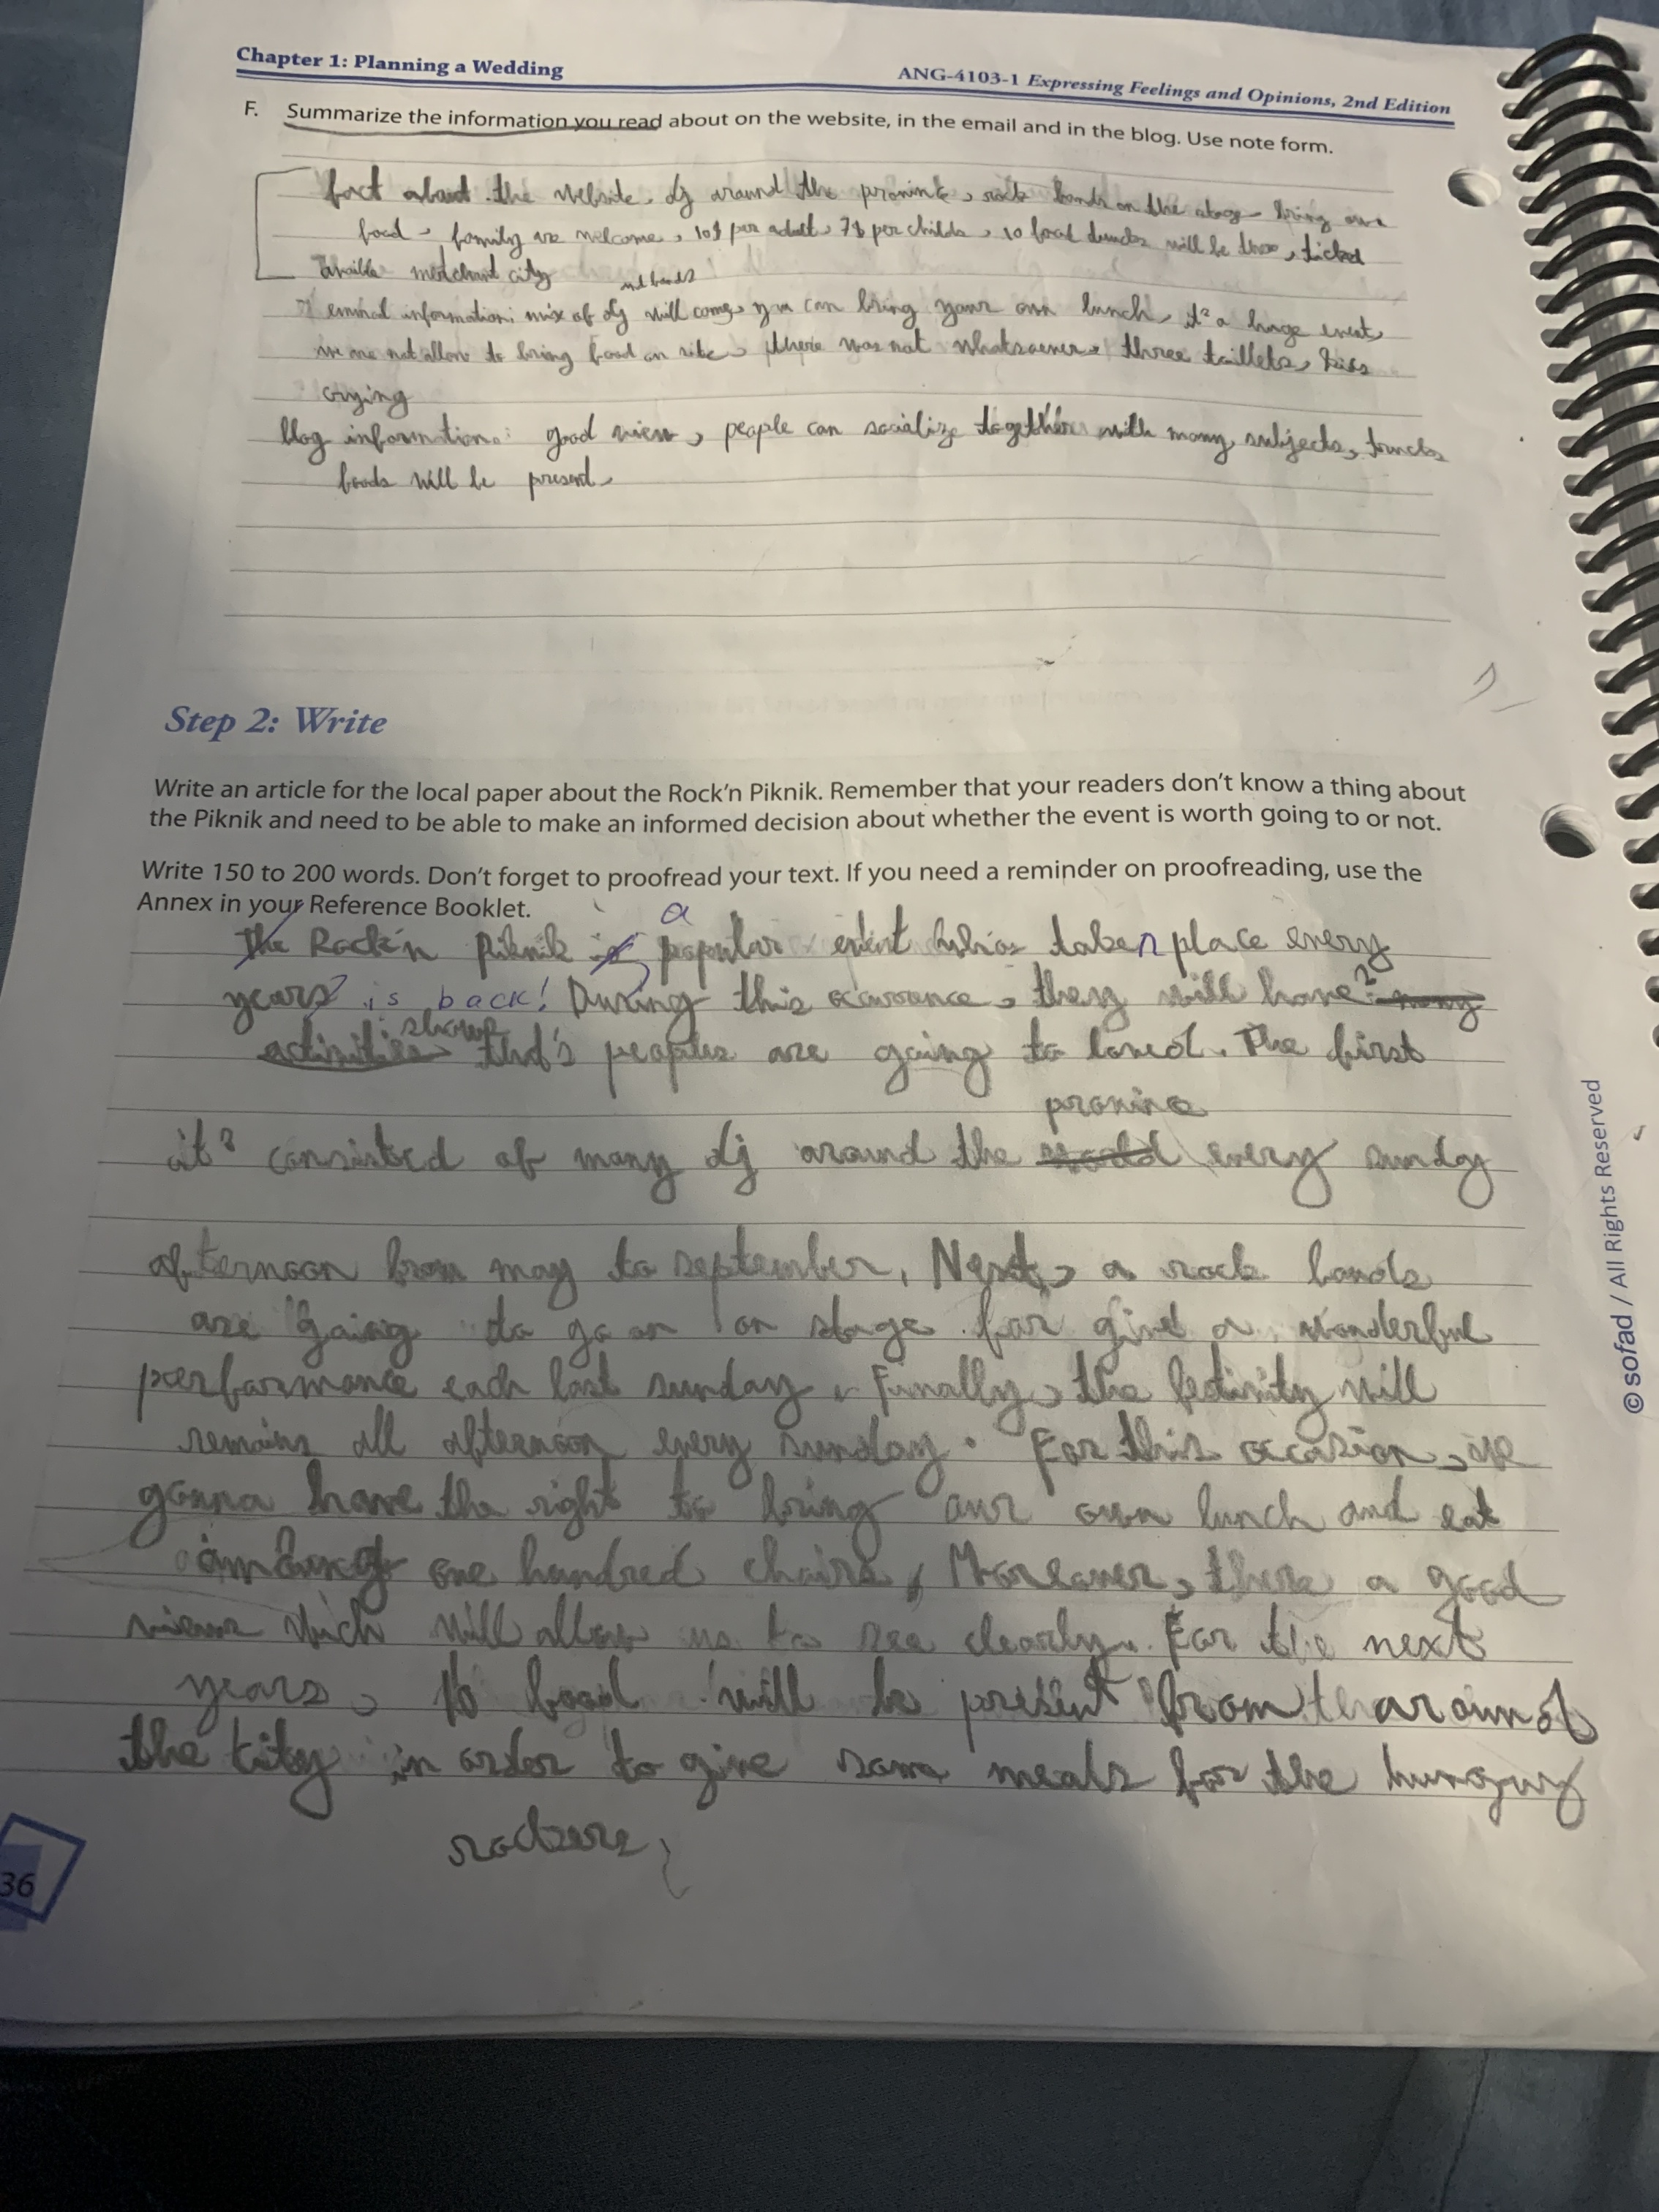 Chapter 1: Planning a Wedding
ANG-4103-1 Expressing Feelings and Opinions, 2nd Edition
F. Summarize the information you read about on the website, in the email and in the blog. Use note form.
fact about the website. dj around the provink, rock bands on the stage bring own
food, family are welcome, 10$ per adult, 7$ per childs, 10 food trucks will be there, ticked
availble merchant city
and bands
email information: mix of dj will come, you can bring your own lunch, it's a huge event,
we are not allow to bring food on site, there was not whatsoever, three toillets, kids
crying
blog information: good view, people can socialize together with many subjects, trucks
foods will be present
Step 2: Write
Write an article for the local paper about the Rock'n Piknik. Remember that your readers don't know a thing about
the Piknik and need to be able to make an informed decision about whether the event is worth going to or not.
Write 150 to 200 words. Don't forget to proofread your text. If you need a reminder on proofreading, use the
Annex in your Reference Booklet.
a
The Rock'n Piknik is popular event taken place every
years is back! During this ocurrence, they will have many
shows
activities that's peoples are going to loved. The first
province
it's consisted of many dj around the world every sunday
afternoon from may to september. Next, a rock bands
are going to go on on stage for give a wonderful
performance each last sunday. Finally, the festivity will
remains all afternoon every sunday. For this occasion, we
gonna have the right to bring our own lunch and eat
among one hundred chairs. Moreover, there a good
view which will allow us to see clearly. For the next
years, 10 food will be present from around
the city in order to give some meals for the hungry
rockers
36
© sofad / All Rights Reserved